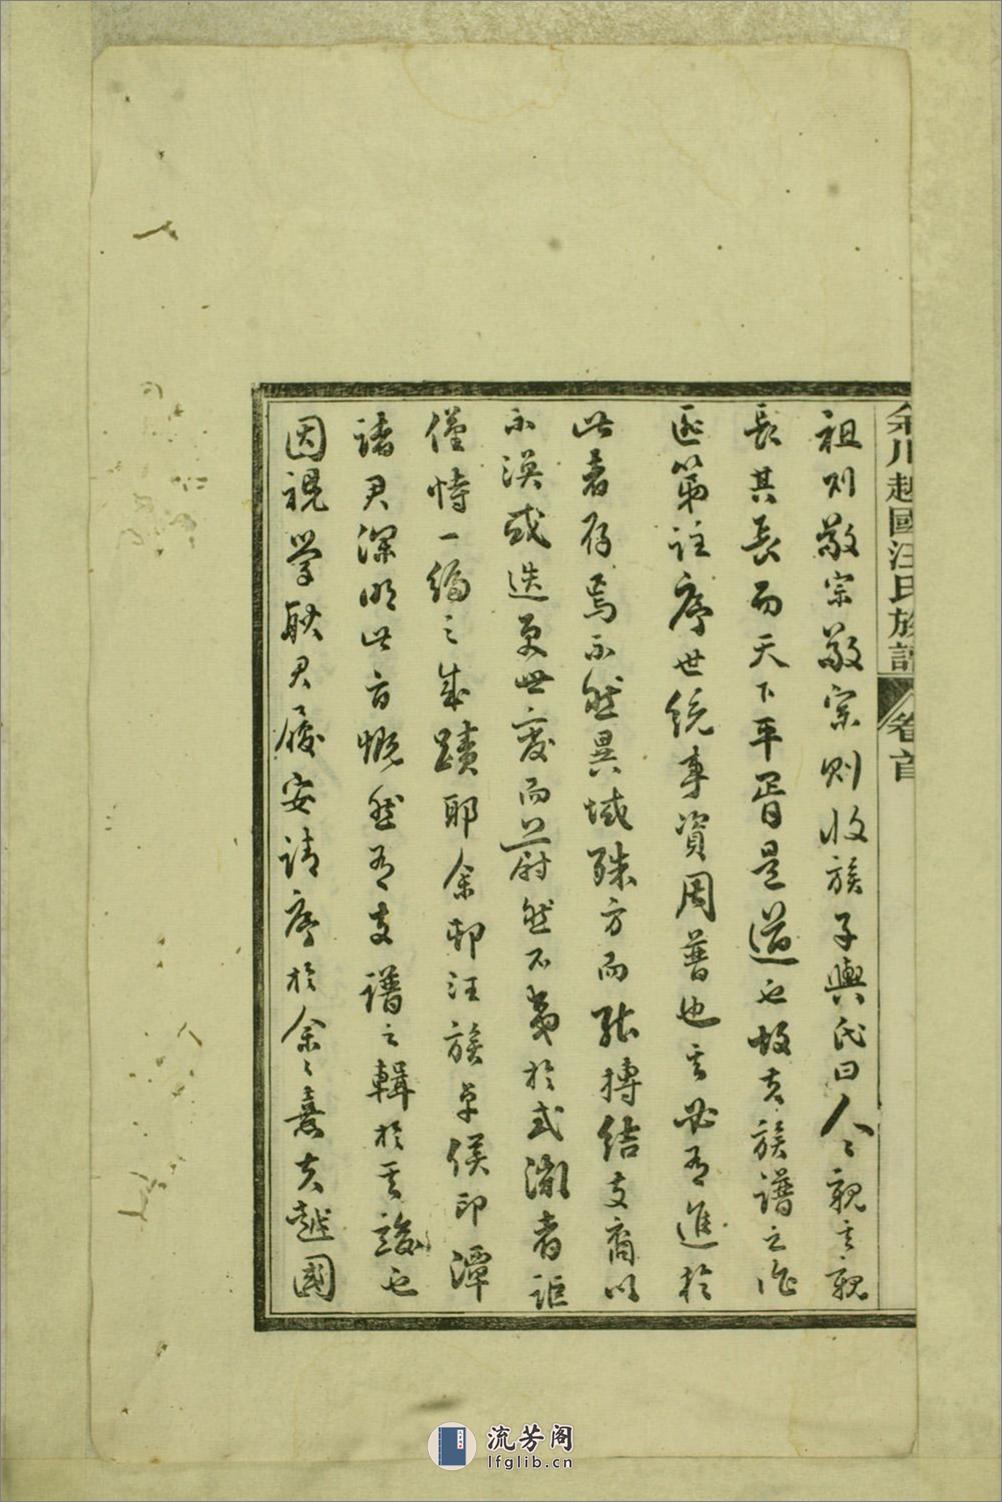 余川越國汪氏族譜 卷首
祖則敬宗敬宗則收族子輿氏曰人人親其親
長其長而天下平胥是道也故夫族譜之作
匪第註序世統事資周普也其必有進於
此者存焉不然異域殊方而能摶結支裔以
不渙或迭更世變而蔚然不夷於式微者詎
僅恃一編之成蹟耶余邨汪族卓偀印潭
諸君深明此旨慨然有支譜之輯於其竣也
因視學耿君履安請序於余余意夫越國
流芳阁
lfglib.cn